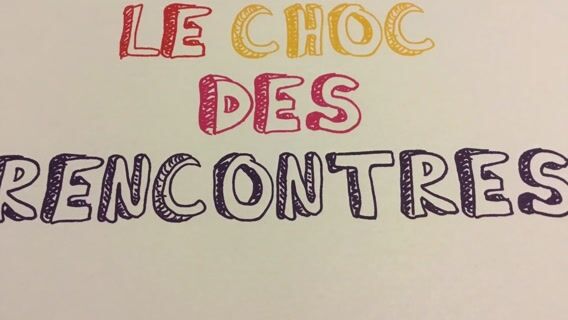 LE CHOC
DES
RENCONTRES